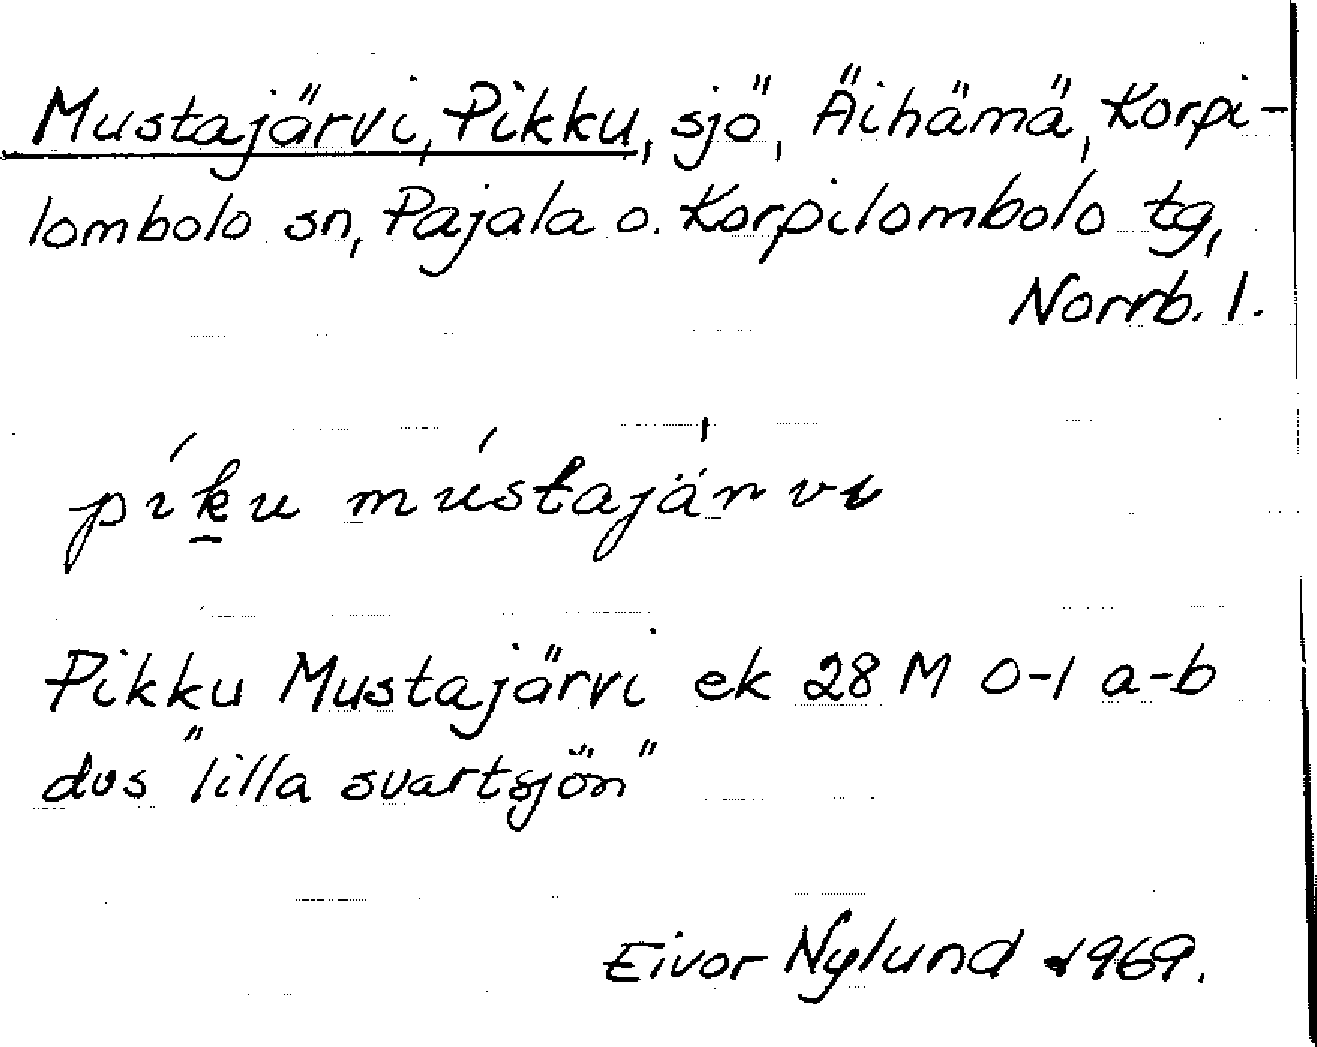 Mustajärvi, Pikku, sjö, Äihämä, Korpi-
lombolo sn, Pajala o. Korpilombolo tg,
Norrb. l.
píḵu mústajä́rvi
Pikku Mustajärvi ek 28 M 0-1 a-b
dvs "lilla svartsjön"
Eivor Nylund 1969.